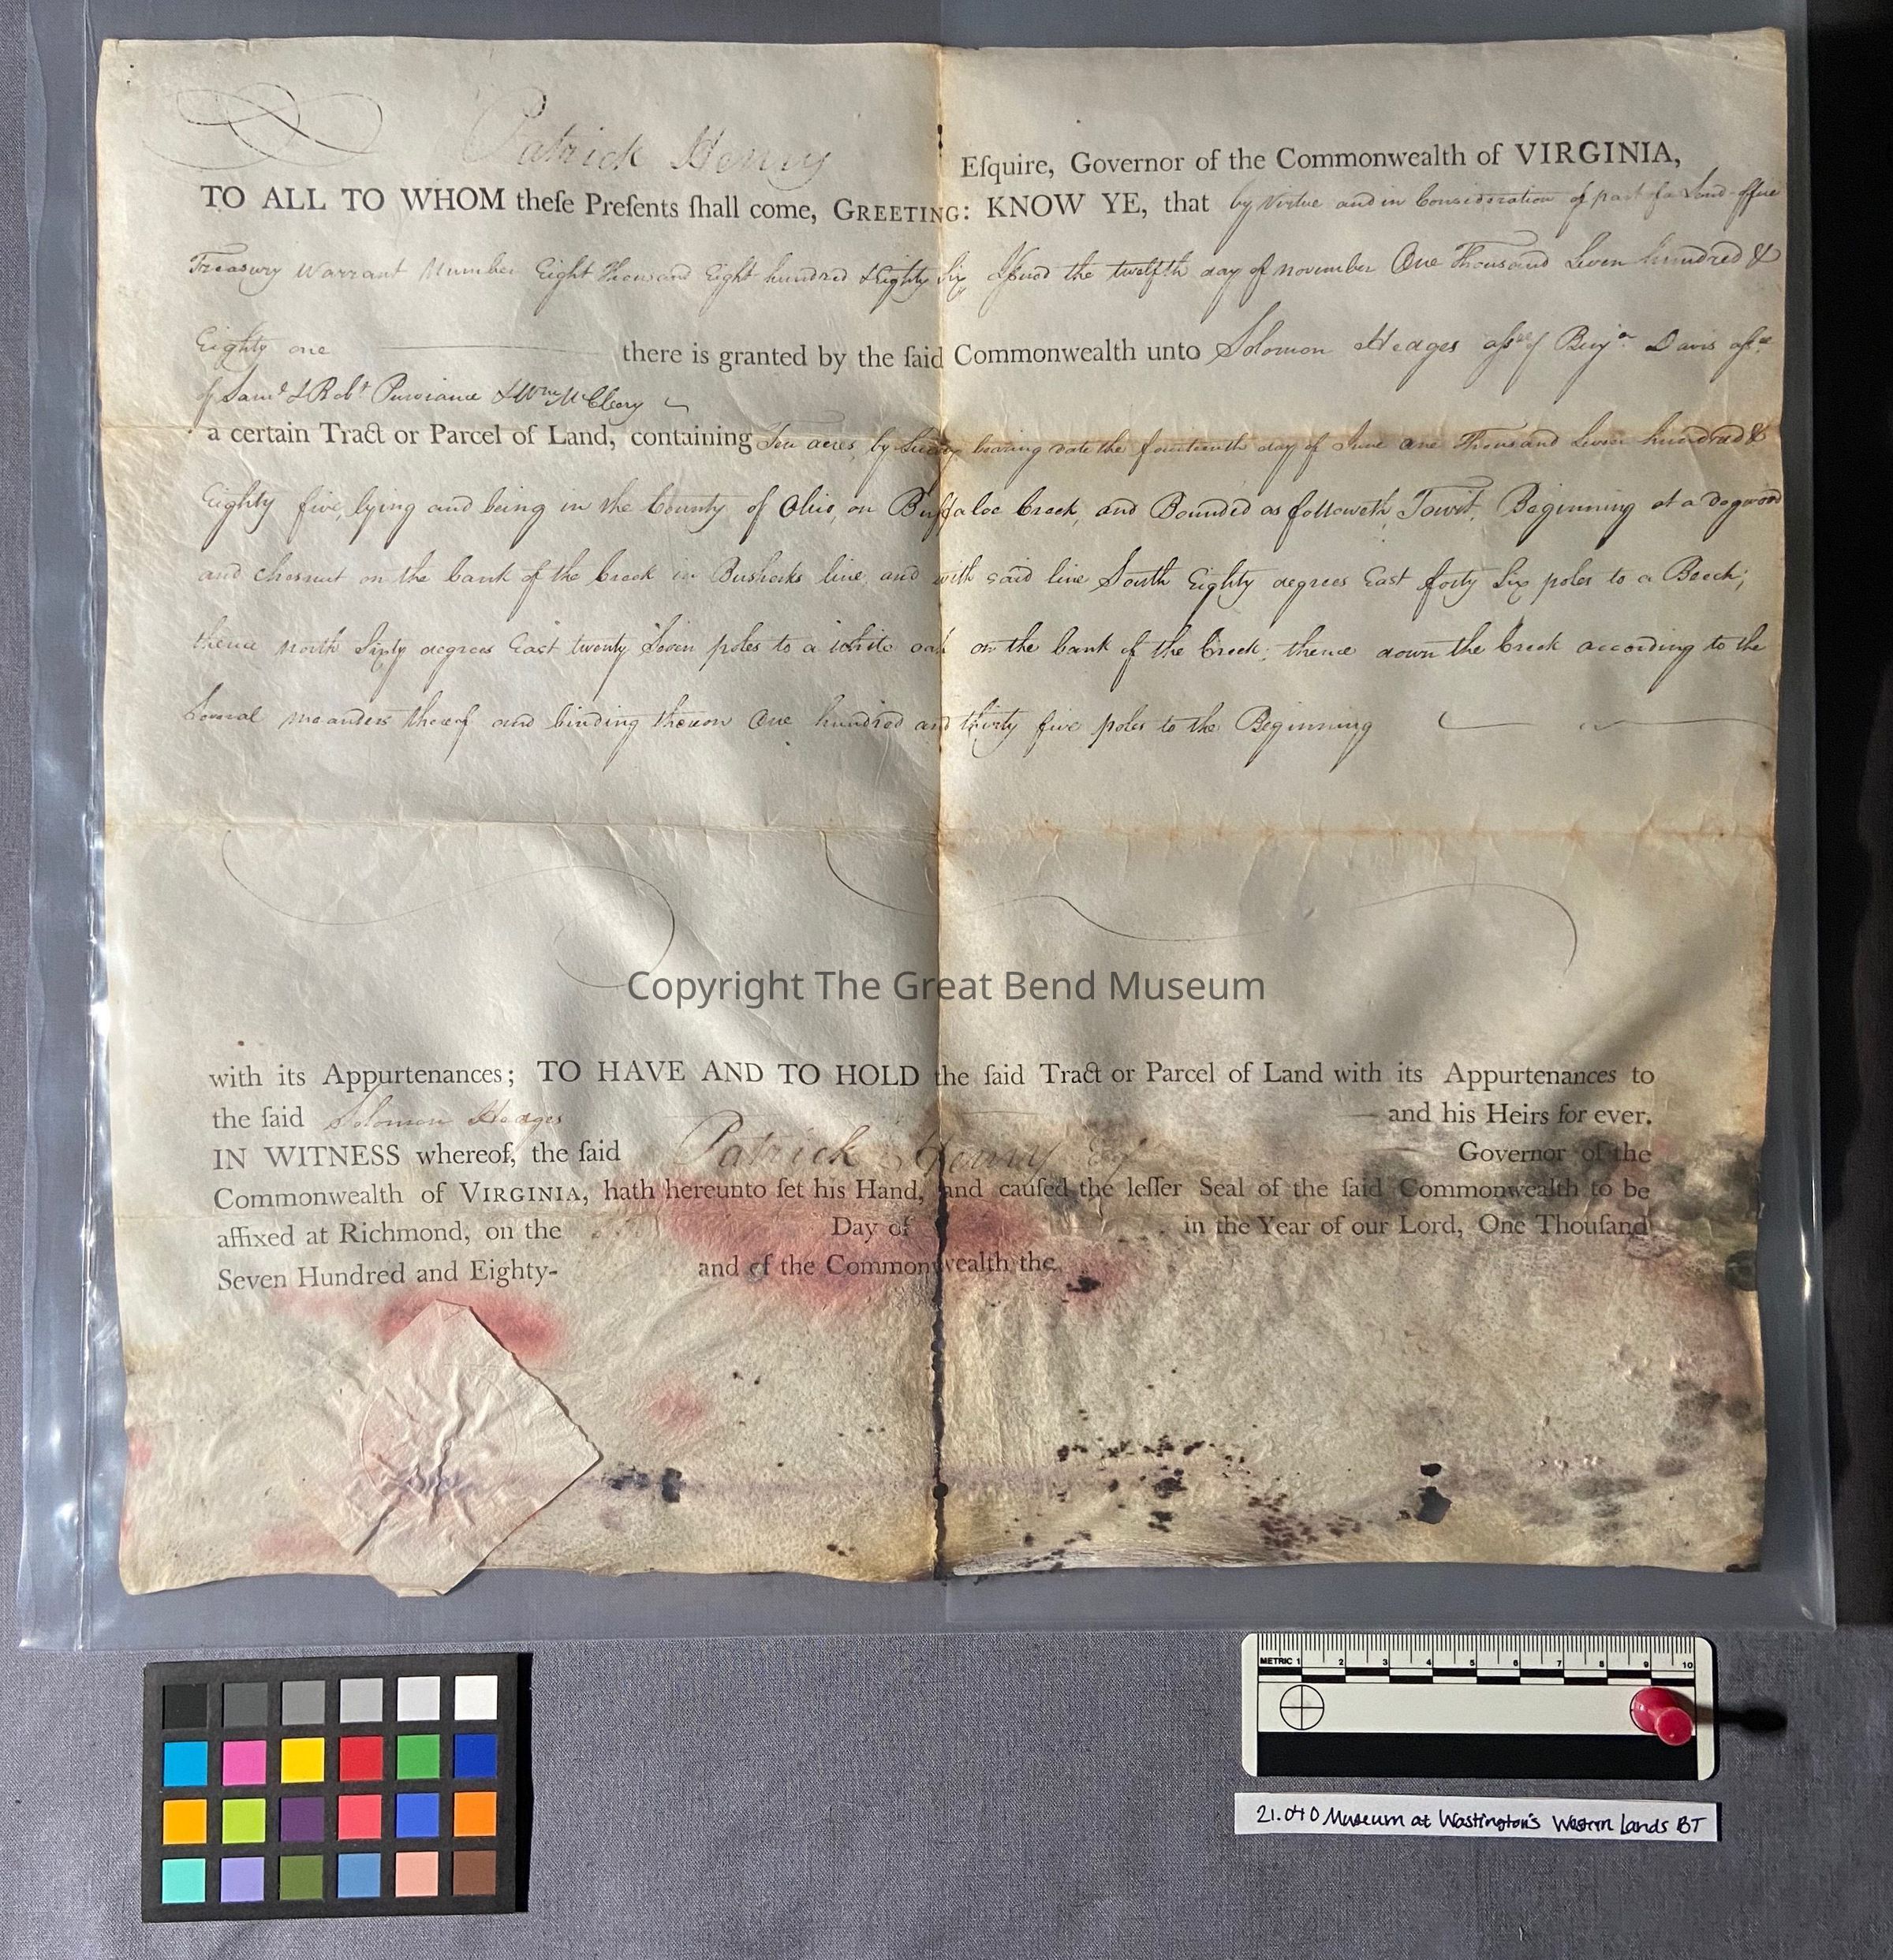 Patrick Henry Eſquire, Governor of the Commonwealth of VIRGINIA,
TO ALL TO WHOM theſe Preſents ſhall come, GREETING: KNOW YE, that by Virtue and in Consideration of part of a Land-office
Treasury Warrant Number Eight Thousand Eight hundred & Eighty Six Issued the twelfth day of november One Thousand Seven hundred &
Eighty one there is granted by the ſaid Commonwealth unto Solomon Hedges assee of Benja. Davis assee
of Saml. & Robt. Purviance & Wm. McCleary
a certain Tract or Parcel of Land, containing Ten acres, by Survey bearing date the fourteenth day of June One Thousand Seven hundred &
Eighty five, lying and being in the County of Ohio, on Buffaloe Creek, and Bounded as followeth, Towit, Beginning at a dogwood
and chesnut on the bank of the Creek in line, and with said line South Eighty degrees East forty Six poles to a Beech;
thence north Sixty degrees East twenty Seven poles to a white oak on the bank of the Creek; thence down the Creek according to the
Several meanders thereof and binding thereon One hundred and thirty five poles to the Beginning
Copyright The Great Bend Museum
with its Appurtenances; TO HAVE AND TO HOLD the ſaid Tract or Parcel of Land with its Appurtenances to
the ſaid Solomon Hedges and his Heirs for ever.
IN WITNESS whereof, the ſaid Patrick Henry Esq Governor of the
Commonwealth of VIRGINIA, hath hereunto ſet his Hand, and cauſed the leſſer Seal of the ſaid Commonwealth to be
affixed at Richmond, on the Day of in the Year of our Lord, One Thouſand
Seven Hundred and Eighty- and of the Commonwealth the
METRIC 1 2 3 4 5 6 7 8 9 10
21.040 Museum at Wastington's Western Lands BT